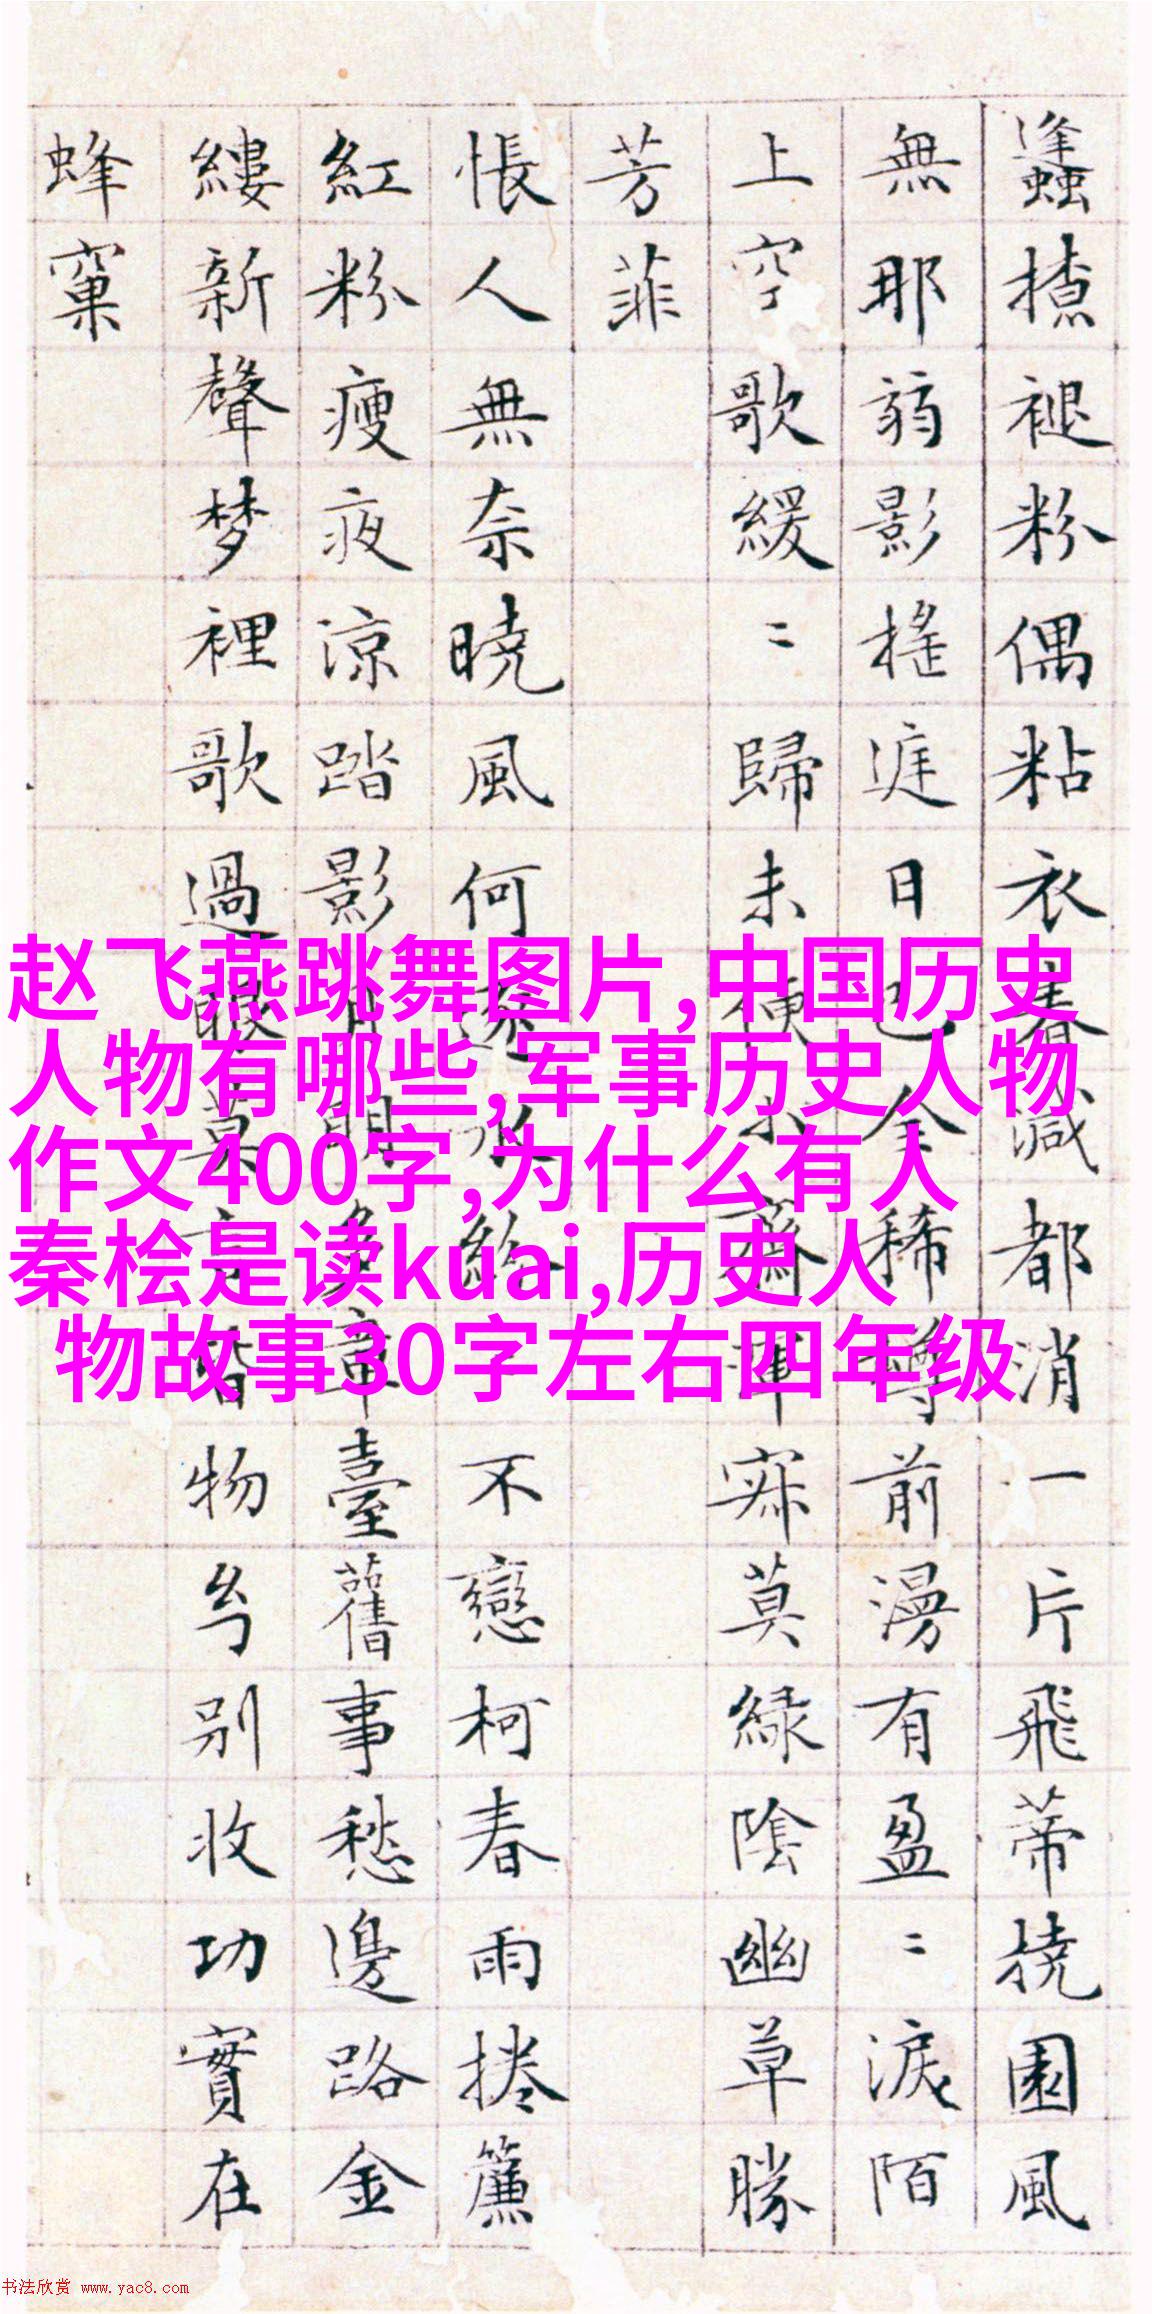 蠭褪粉偶粘衣春減都消一片飛蒂撓園風
無那弱影搖日已全稀樽前漫有盈〻淚陌
上空歌緩〻歸未便渾寂莫綠陰幽草勝
芳菲
悵人無奈曉風何逐水不戀柯春雨捲簾
紅粉瘦夜涼踏影月明多章臺舊事愁邊路金
縷新聲梦裡歌過眼莫言皆物兮别收功實在
蜂窠
赵飞燕跳舞图片,中国历史
人物有哪些,军事历史人物
作文400字,为什么有人
秦桧是读kuai,历史人
物故事30字左右四年级
书法欣赏 www.yac8.com